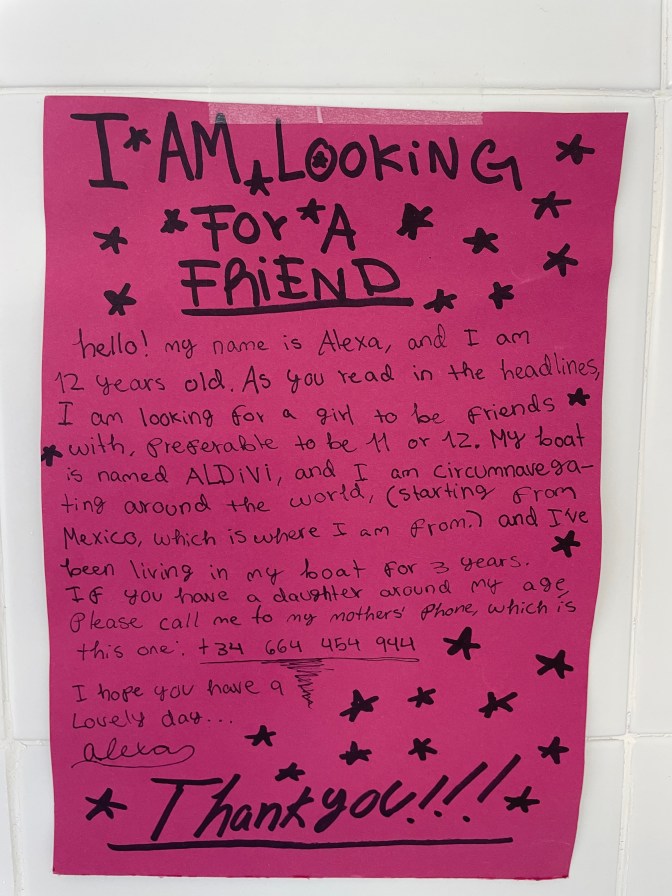 I AM LOOKING
FOR A
FRIEND
hello! my name is Alexa, and I am
12 years old. As you read in the headlines,
I am looking for a girl to be friends
with, preferable to be 11 or 12. My boat
is named ALDIVI, and I am circumnavega-
ting around the world, (starting from
Mexico, which is where I am from.) and I've
been living in my boat for 3 years.
If you have a daughter around my age,
Please call me to my mothers' phone, which is
this one: +34 664 454 944
I hope you have a
Lovely day...
alexa
Thank you!!!